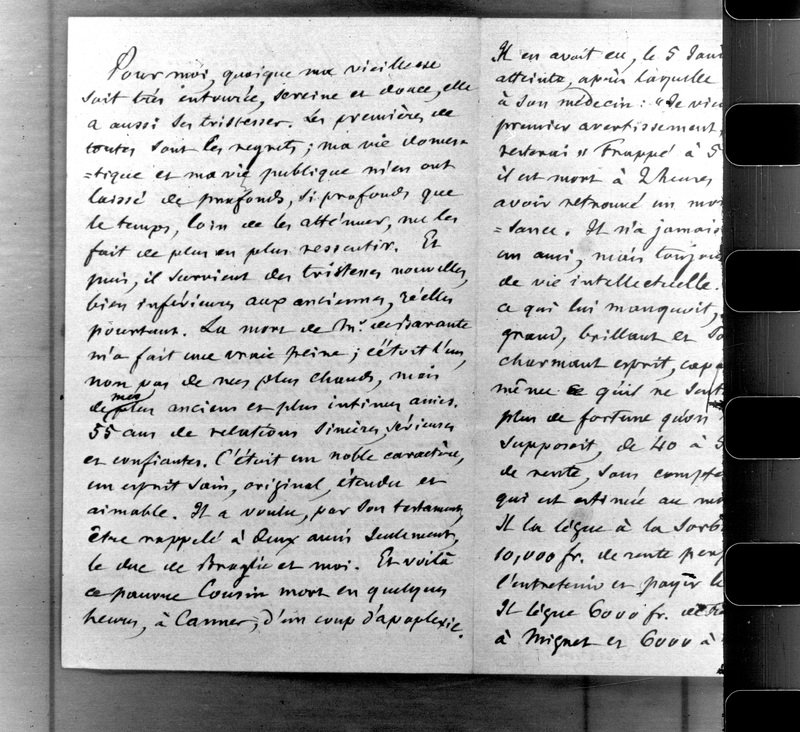 Pour moi, quoique ma vieillesse
soit très entourée, sereine et douce, elle
a aussi ses tristesses. Les premières de
toutes sont les regrets; ma vie domes-
=tique et ma vie publique m'en ont
laissé de profonds, si profonds que
le temps, loin de les atténuer, me les
fait de plus en plus ressentir. Et
puis, il survient des tristesses nouvelles,
bien inférieures aux anciennes, réelles
pourtant. La mort de Mr. de Barante
m'a fait une vraie peine; c'étoit l'un,
non pas de mes plus chauds, mais
de mes plus anciens et plus intimes amis.
55 ans de relations sincères, sérieuses
et confiantes. C'étoit un noble caractère,
un esprit sain, original, étendu et
aimable. Il a voulu, par son testament,
être rappelé à deux amis seulement,
le duc de Broglie et moi. Et voilà
ce pauvre Cousin mort en quelques
heures, à Cannes, d'un coup d'apoplexie.
Il en avoit eu, le 5 Janv
atteinte, après laquelle
à son médecin: "Je vien
premier avertissement,
resterai" Frappé à 5
il est mort à 2 heures
avoir retrouvé un mo
=sance. Il n'a jamais
un ami, mais toujou
de vie intellectuelle.
ce qui lui manquoit,
grand, brillant et
charmant esprit, capa
même ce qu'il ne sent
plus de fortune qu'on
supposoit, de 40 à 5
de rente, sans compte
qui est estimée au
Il la lègue à la Sorb
10,000 fr. de rente
l'entretenir et payer le
Il lègue 6000 fr. de
à Mignet et 6000 à